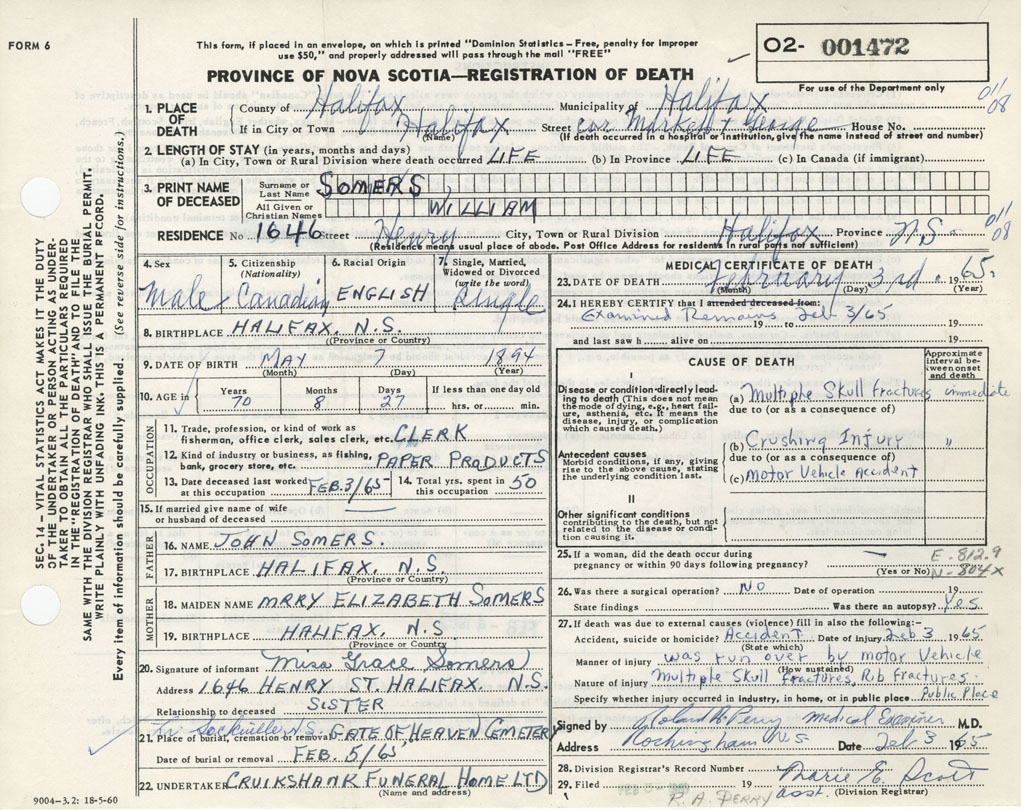 FORM 6
This form, if placed in an envelope, on which is printed "Dominion Statistics – Free, penalty for improper
use $50," and properly addressed will pass through the mail "FREE"
O2- 001472
For use of the Department only
PROVINCE OF NOVA SCOTIA—REGISTRATION OF DEATH
011/08
1. PLACE OF DEATH
County of Halifax Municipality of Halifax
If in City or Town Halifax Street cor Market & George House No.
(Name) (If death occurred in a hospital or institution, give the name instead of street and number)
2. LENGTH OF STAY (in years, months and days)
(a) In City, Town or Rural Division where death occurred LIFE (b) In Province LIFE (c) In Canada (if immigrant)
3. PRINT NAME OF DECEASED
Surname or Last Name SOMERS,
All Given or Christian Names WILLIAM
011/08
RESIDENCE No 1646 Street Henry City, Town or Rural Division Halifax Province N.S.
(Residence means usual place of abode. Post Office Address for residents in rural parts not sufficient)
4. Sex Male
5. Citizenship (Nationality) Canadian
6. Racial Origin ENGLISH
7. Single, Married, Widowed or Divorced (write the word) Single
8. BIRTHPLACE HALIFAX, N.S.
(Province or Country)
9. DATE OF BIRTH MAY 7 1894
(Month) (Day) (Year)
10. AGE in Years 70 Months 8 Days 27 If less than one day old hrs. or min.
OCCUPATION
11. Trade, profession, or kind of work as
fisherman, office clerk, sales clerk, etc. CLERK
12. Kind of industry or business, as fishing,
bank, grocery store, etc. PAPER PRODUCTS
13. Date deceased last worked at this occupation FEB. 3/65 14. Total yrs. spent in this occupation 50
15. If married give name of wife
or husband of deceased —
FATHER
16. NAME JOHN SOMERS.
17. BIRTHPLACE HALIFAX, N.S.
(Province or Country)
MOTHER
18. MAIDEN NAME MARY ELIZABETH SOMERS
19. BIRTHPLACE HALIFAX, N.S
(Province or Country)
20. Signature of informant Miss Grace Somers
Address 1646 HENRY ST. HALIFAX. N.S.
Relationship to deceased SISTER
21. Place of burial, cremation or removal GATE OF HEAVEN CEMETERY
Date of burial or removal FEB. 5/65
22. UNDERTAKER CRUIKSHANK FUNERAL HOME LTD
(Name and address)
9004–3.2: 18-5-60
MEDICAL CERTIFICATE OF DEATH
23. DATE OF DEATH February 3rd 1965.
(Month) (Day) (Year)
24. I HEREBY CERTIFY that I attended deceased from:
Examined Remains Feb 3/65
19 to 19
and last saw h alive on 19
CAUSE OF DEATH
Approximate interval between onset and death
I
Disease or condition directly leading to death (This does not mean the mode of dying, e.g., heart failure, asthenia, etc. It means the disease, injury, or complication which caused death.)
(a) Multiple Skull Fractures immediate
due to (or as a consequence of)
Antecedent causes
Morbid conditions, if any, giving rise to the above cause, stating the underlying condition last.
(b) Crushing Injury "
due to (or as a consequence of)
(c) Motor Vehicle Accident
II
Other significant conditions
contributing to the death, but not related to the disease or condition causing it.
25. If a woman, did the death occur during
pregnancy or within 90 days following pregnancy? —
(Yes or No)
E-812.9
N-804x
26. Was there a surgical operation? NO Date of operation 19
State findings Was there an autopsy? Yes.
27. If death was due to external causes (violence) fill in also the following:–
Accident, suicide or homicide? Accident Date of injury Feb 3 1965
(State which)
Manner of injury was run over by motor Vehicle
(How sustained)
Nature of injury Multiple Skull Fractures, Rib Fractures.
Specify whether injury occurred in industry, in home, or in public place Public Place
Signed by Roland A. Perry Medical Examiner M.D.
Address Rockingham N.S Date Feb 3 1965
28. Division Registrar's Record Number
29. Filed 19 Marie E. Scott
asst. (Division Registrar)
R. A. PERRY
SEC. 14 – VITAL STATISTICS ACT MAKES IT THE DUTY
OF THE UNDERTAKER OR PERSON ACTING AS UNDER-
TAKER TO OBTAIN ALL THE PARTICULARS REQUIRED
IN THE "REGISTRATION OF DEATH" AND TO FILE THE
SAME WITH THE DIVISION REGISTRAR WHO SHALL ISSUE THE BURIAL PERMIT.
WRITE PLAINLY WITH UNFADING INK. THIS IS A PERMANENT RECORD.
Every item of information should be carefully supplied. (See reverse side for instructions.)